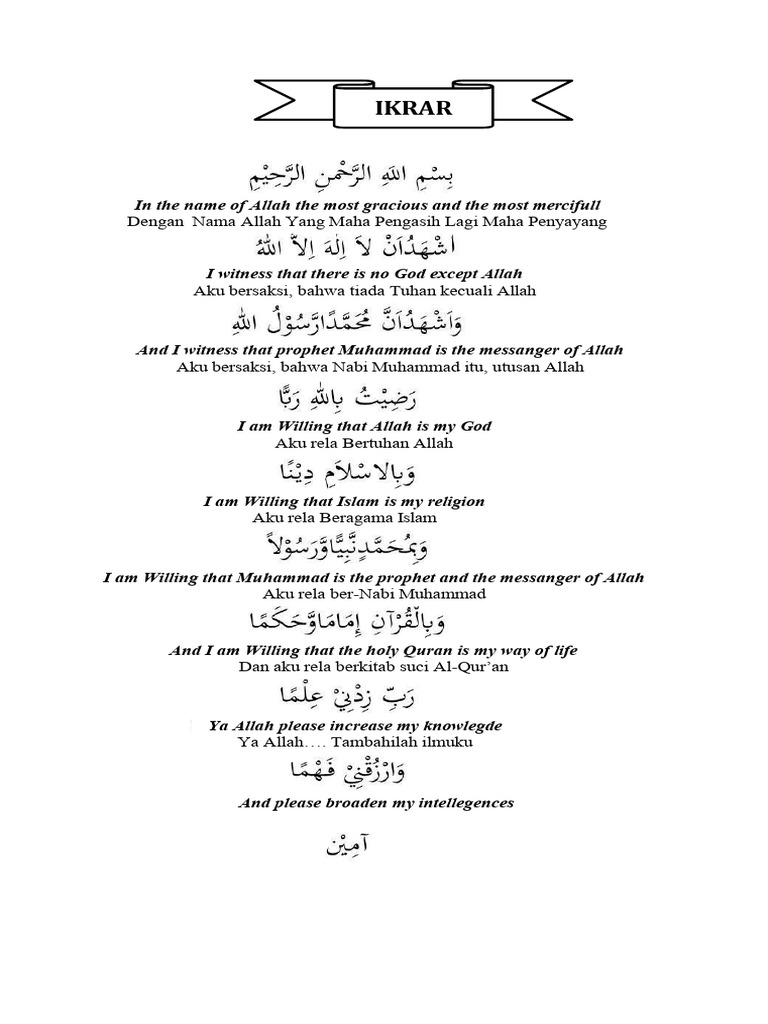 IKRAR
بِسْمِ اللهِ الرَّحْمنِ الرَّحِيْمِ
In the name of Allah the most gracious and the most mercifull
Dengan Nama Allah Yang Maha Pengasih Lagi Maha Penyayang
اَشْهَدُاَنْ لاَ اِلٰهَ اِلاَّ اللهُ
I witness that there is no God except Allah
Aku bersaksi, bahwa tiada Tuhan kecuali Allah
وَاَشْهَدُاَنَّ مُحَمَّدًارَّسُوْلُ اللهِ
And I witness that prophet Muhammad is the messanger of Allah
Aku bersaksi, bahwa Nabi Muhammad itu, utusan Allah
رَضِيْتُ بِاللهِ رَبًّا
I am Willing that Allah is my God
Aku rela Bertuhan Allah
وَبِالاسْلاَمِ دِيْنًا
I am Willing that Islam is my religion
Aku rela Beragama Islam
وَبِمُحَمَّدٍنَّبِيًّاوَّرَسُوْلاً
I am Willing that Muhammad is the prophet and the messanger of Allah
Aku rela ber-Nabi Muhammad
وَبِالْقُرْآنِ إِمَامَاوَّحَكَمًا
And I am Willing that the holy Quran is my way of life
Dan aku rela berkitab suci Al-Qur’an
رَبِّ زِدْنِيْ عِلْمًا
Ya Allah please increase my knowlegde
Ya Allah…. Tambahilah ilmuku
وَارْزُقْنِيْ فَهْمًا
And please broaden my intellegences
آمِيْن